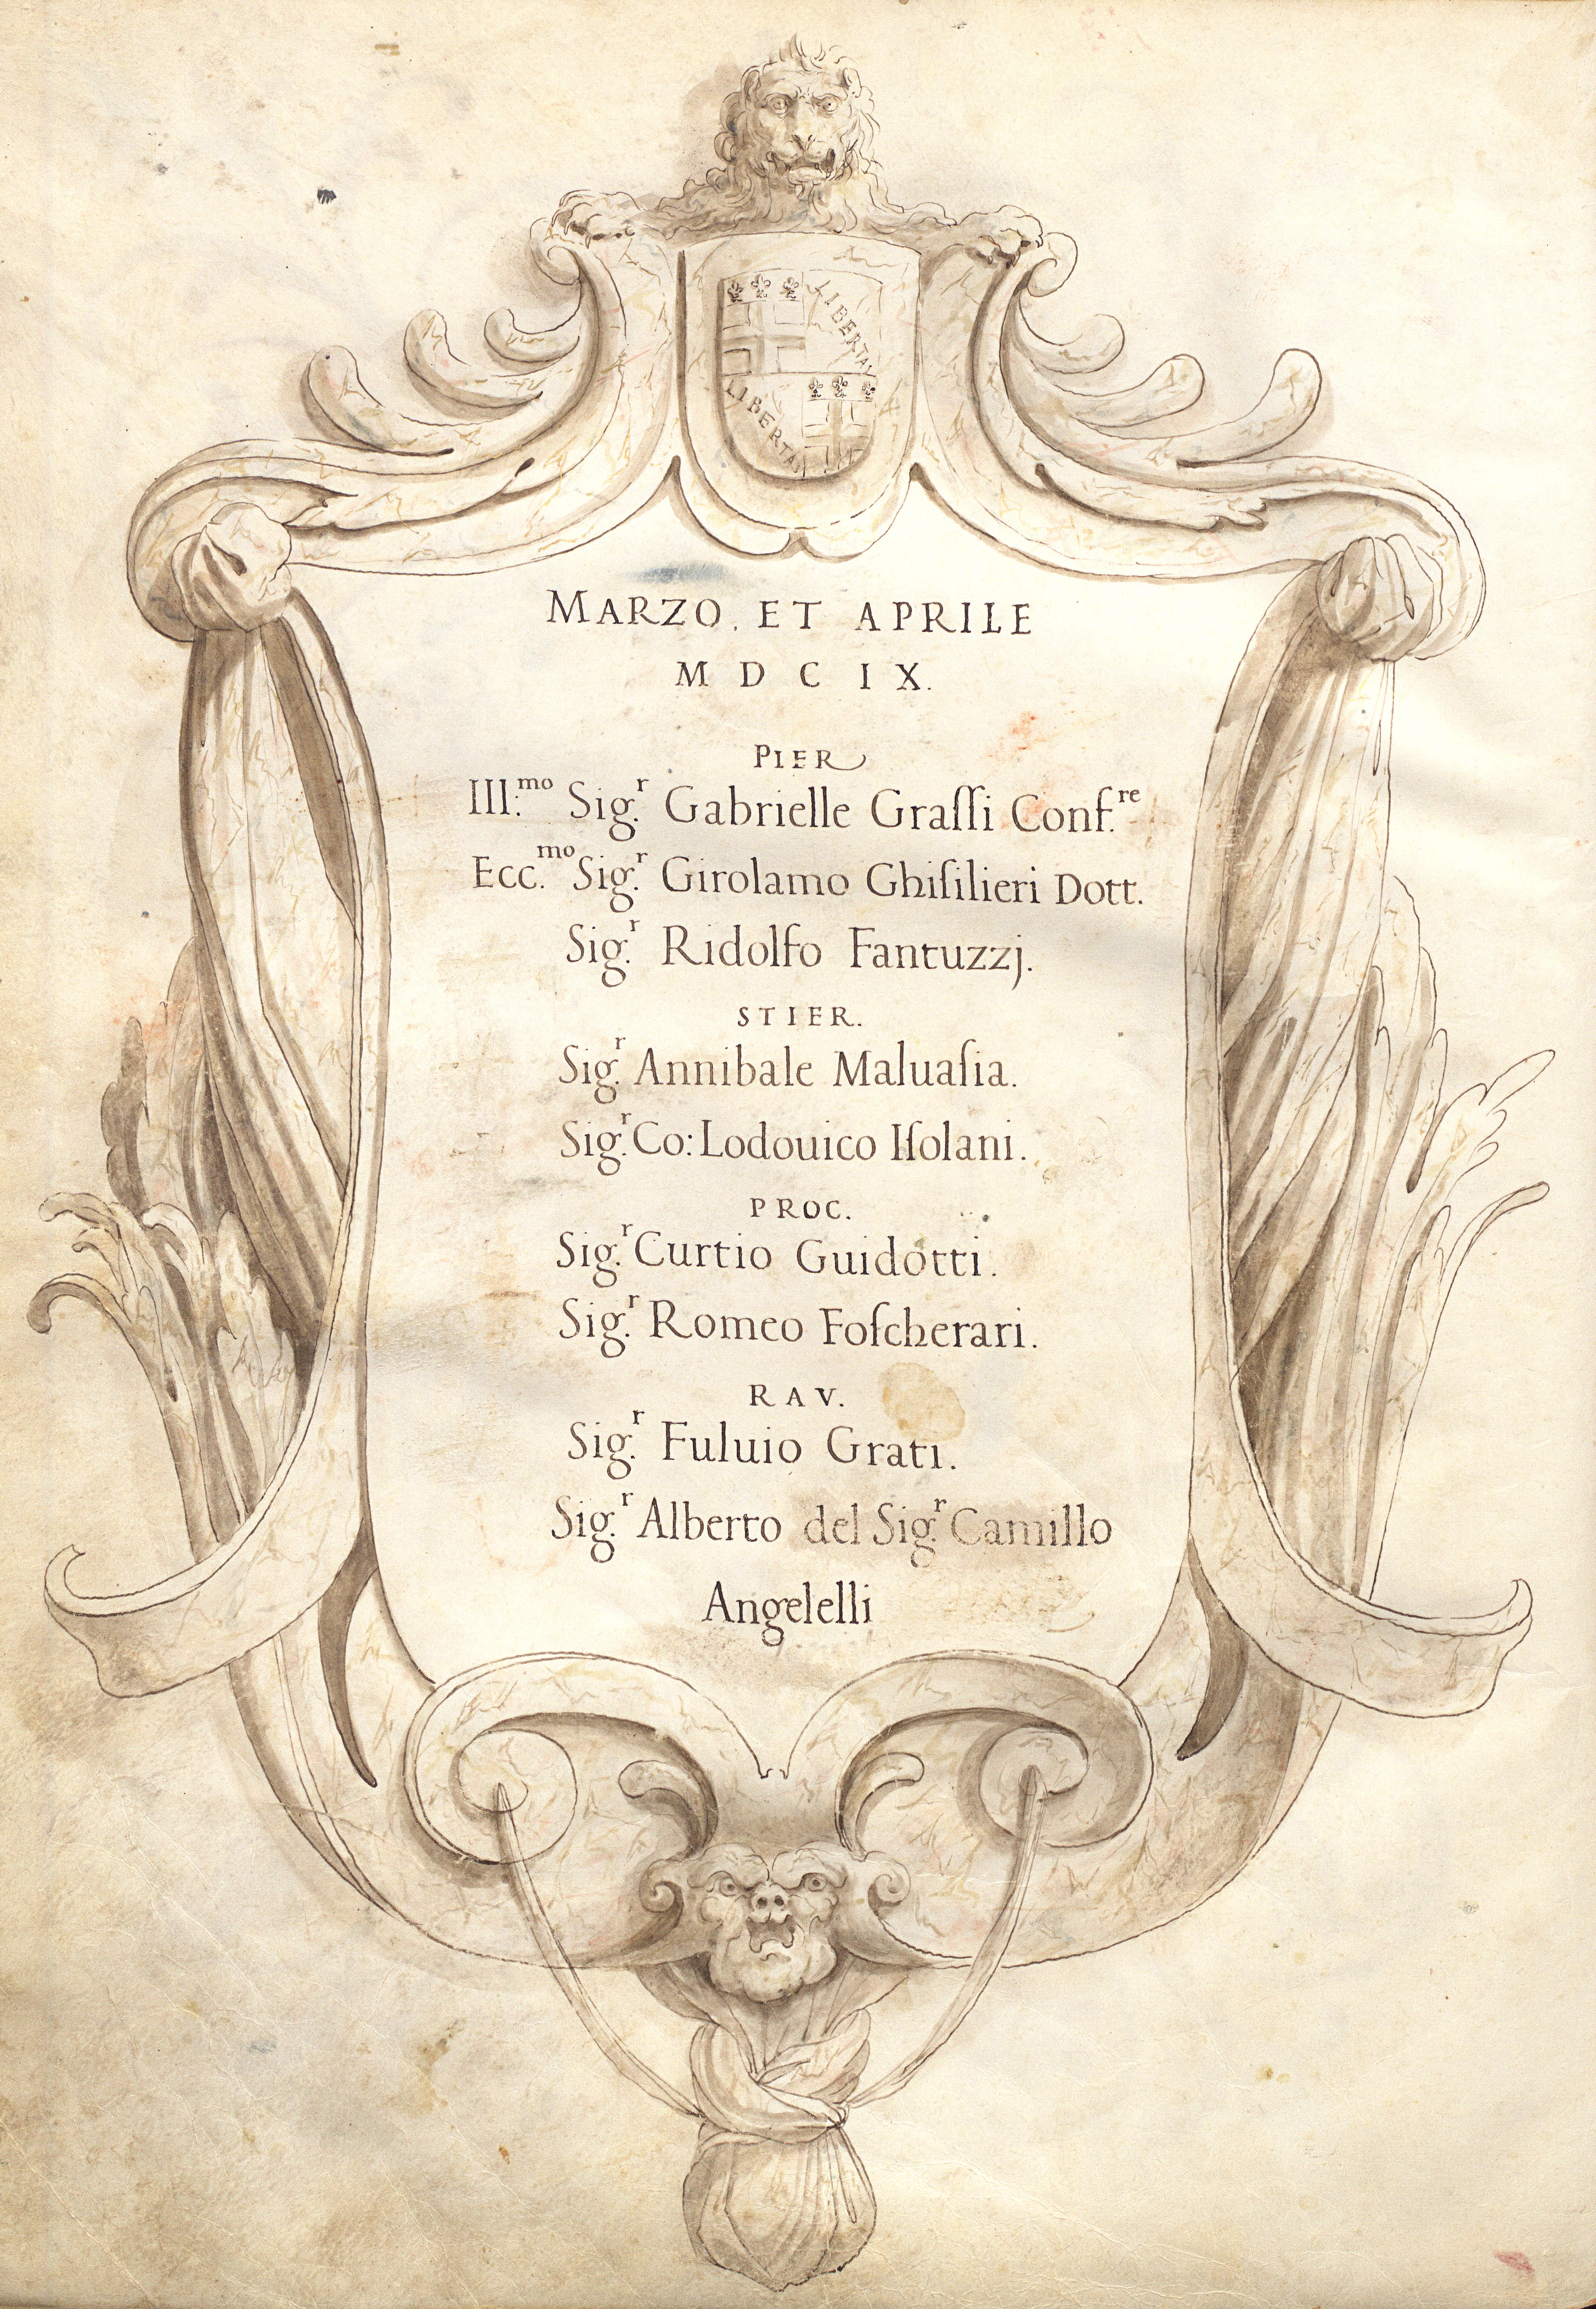 LIBERTAS
LIBERTAS
MARZO. ET APRILE
M D C IX.
PIER
Ill:mo Sig.r Gabrielle Graſſi Conf.re
Ecc.mo Sig.r Girolamo Ghiſilieri Dott.
Sig.r Ridolfo Fantuzzj.
STIER.
Sig.r Annibale Maluaſia.
Sig.r Co: Lodouico Iſolani.
PROC.
Sig.r Curtio Guidotti.
Sig.r Romeo Foſcherari.
RAV.
Sig.r Fuluio Grati.
Sig.r Alberto del Sig.r Camillo
Angelelli